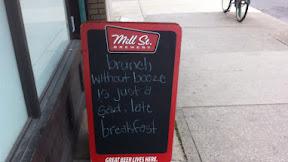 Mill St.
BREWERY
brunch
without booze
is just a
sad, late
breakfast
GREAT BEER LIVES HERE.